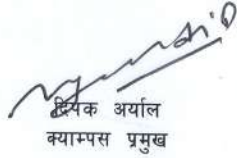 दिपक अर्याल
क्याम्पस प्रमुख